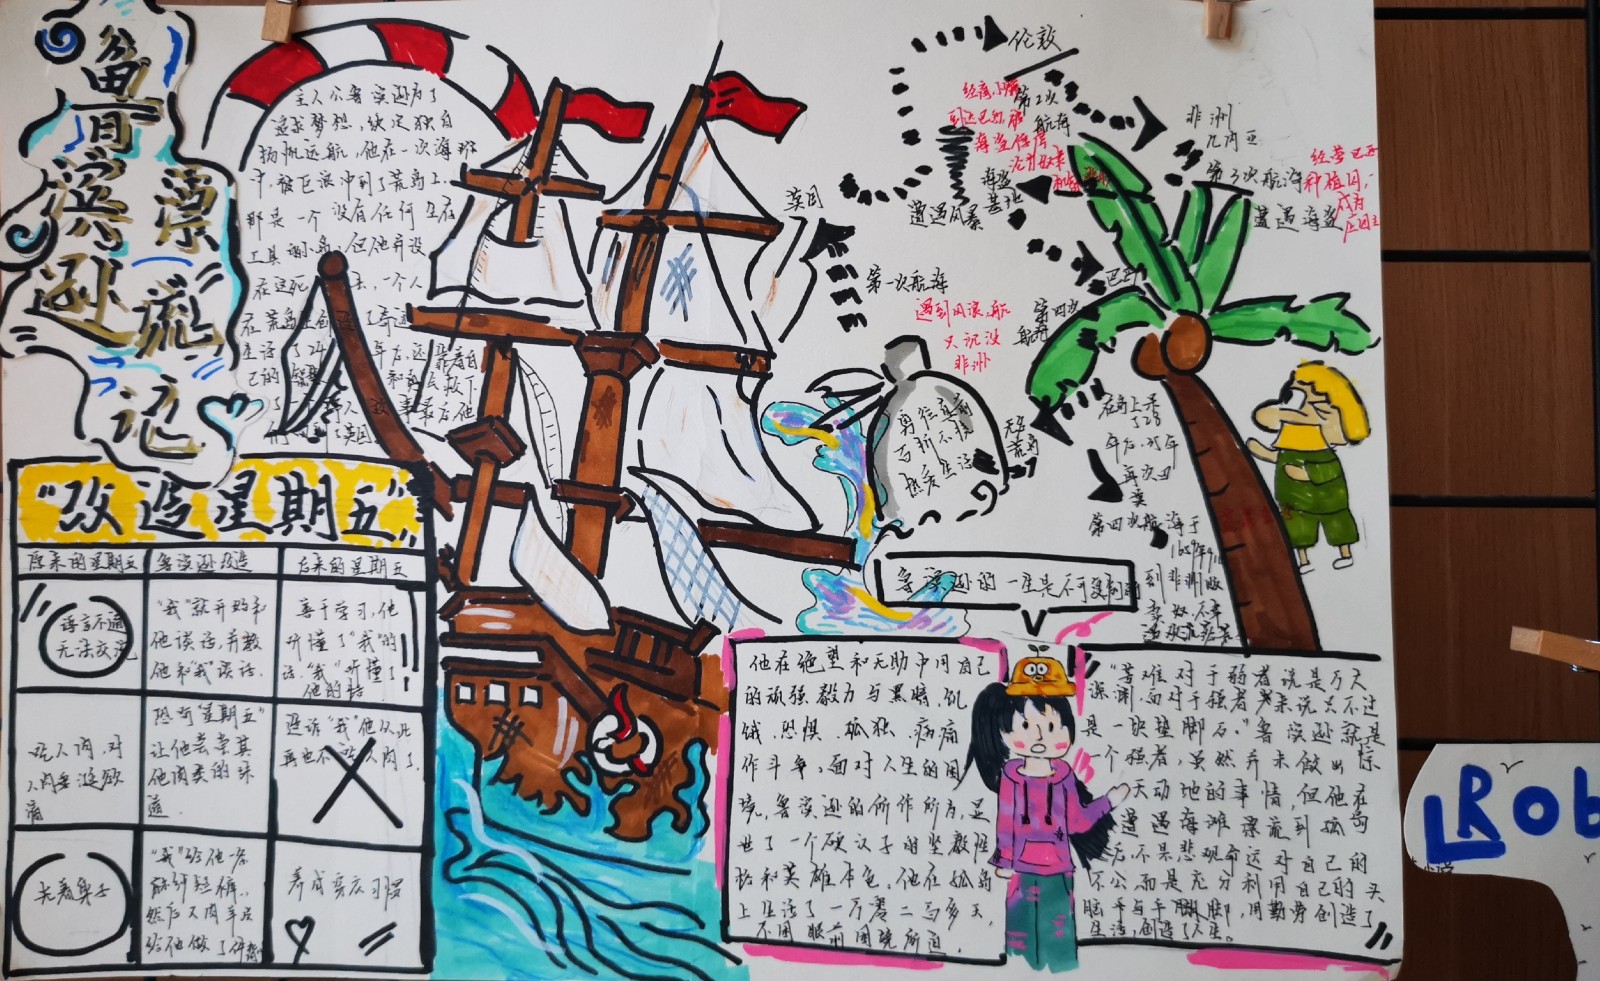 鲁滨逊
漂流
记
主人公鲁滨逊为了
追求梦想,决定独自
扬帆远航,他在一次海
中,被巨浪冲到了荒岛上.
那是一个没有任何生存
工具的小岛,但他并没
在这死 去,一个人
在荒岛上创造了奇迹
生活了24 年后,还靠着自
己的 和 救下
了 人 最后他
们 了英国
"改造星期五"
原来的星期五
鲁滨逊改造
后来的星期五
语言不通
无法交流
"我"就开始和
他谈话,并教
他和"我"谈话.
善于学习,他
听懂了"我"的
话."我"听懂了
他的话
吃人肉,对
人肉垂涎欲
滴
恐吓"星期五"
让他尝尝其
他肉类的味
道.
告诉"我"他从此
再也不吃人肉了.
光着身子
"我"给他一条
麻纱短裤,
然后又用羊皮
给他做了件
养成穿衣习惯
伦敦
英国
第一次航海
遇到风浪,航
只沉没
非洲
第2次
航海
经商,
海盗
沦为奴隶
遭遇风暴
海盗
基地
非洲
几内亚
第3次航海
遭遇海盗
经营巴西
种植园,
成为
庄园主
第四次
航海
巴西
无名
荒岛
在岛上呆
了28
年后,
年
再次回
英
第四次航海于
1659年9月
到非洲贩
卖奴不幸
勇往直前
百折不挠
热爱生活
鲁滨逊的一生是不可复制的
他在绝望和无助中用自己
的顽强毅力与黑暗、饥
饿、恐惧、孤独、病痛
作斗争,面对人生的困
境,鲁滨逊的所作所为,显
世了一个硬汉子的坚毅性
格和英雄本色,他在孤岛
上生活了一万零二百多天,
不因眼前困境所迫.
"苦难对于弱者说是万丈
深渊,而对于强者来说只不过
是一块垫脚石."鲁滨逊就是
一个强者,虽然并未做出惊
天动地的事情,但他在
遭遇海滩漂流到孤岛
后,不是悲观命运对自己的
不公,而是充分利用自己的头
脑手与手脚,用勤劳创造了
生活,创造了人生。
Rob